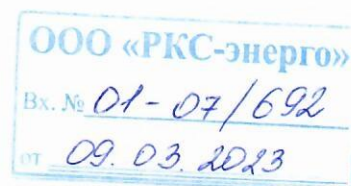 ООО «РКС-энерго»
Вх. № 01-07/692
от 09.03.2023